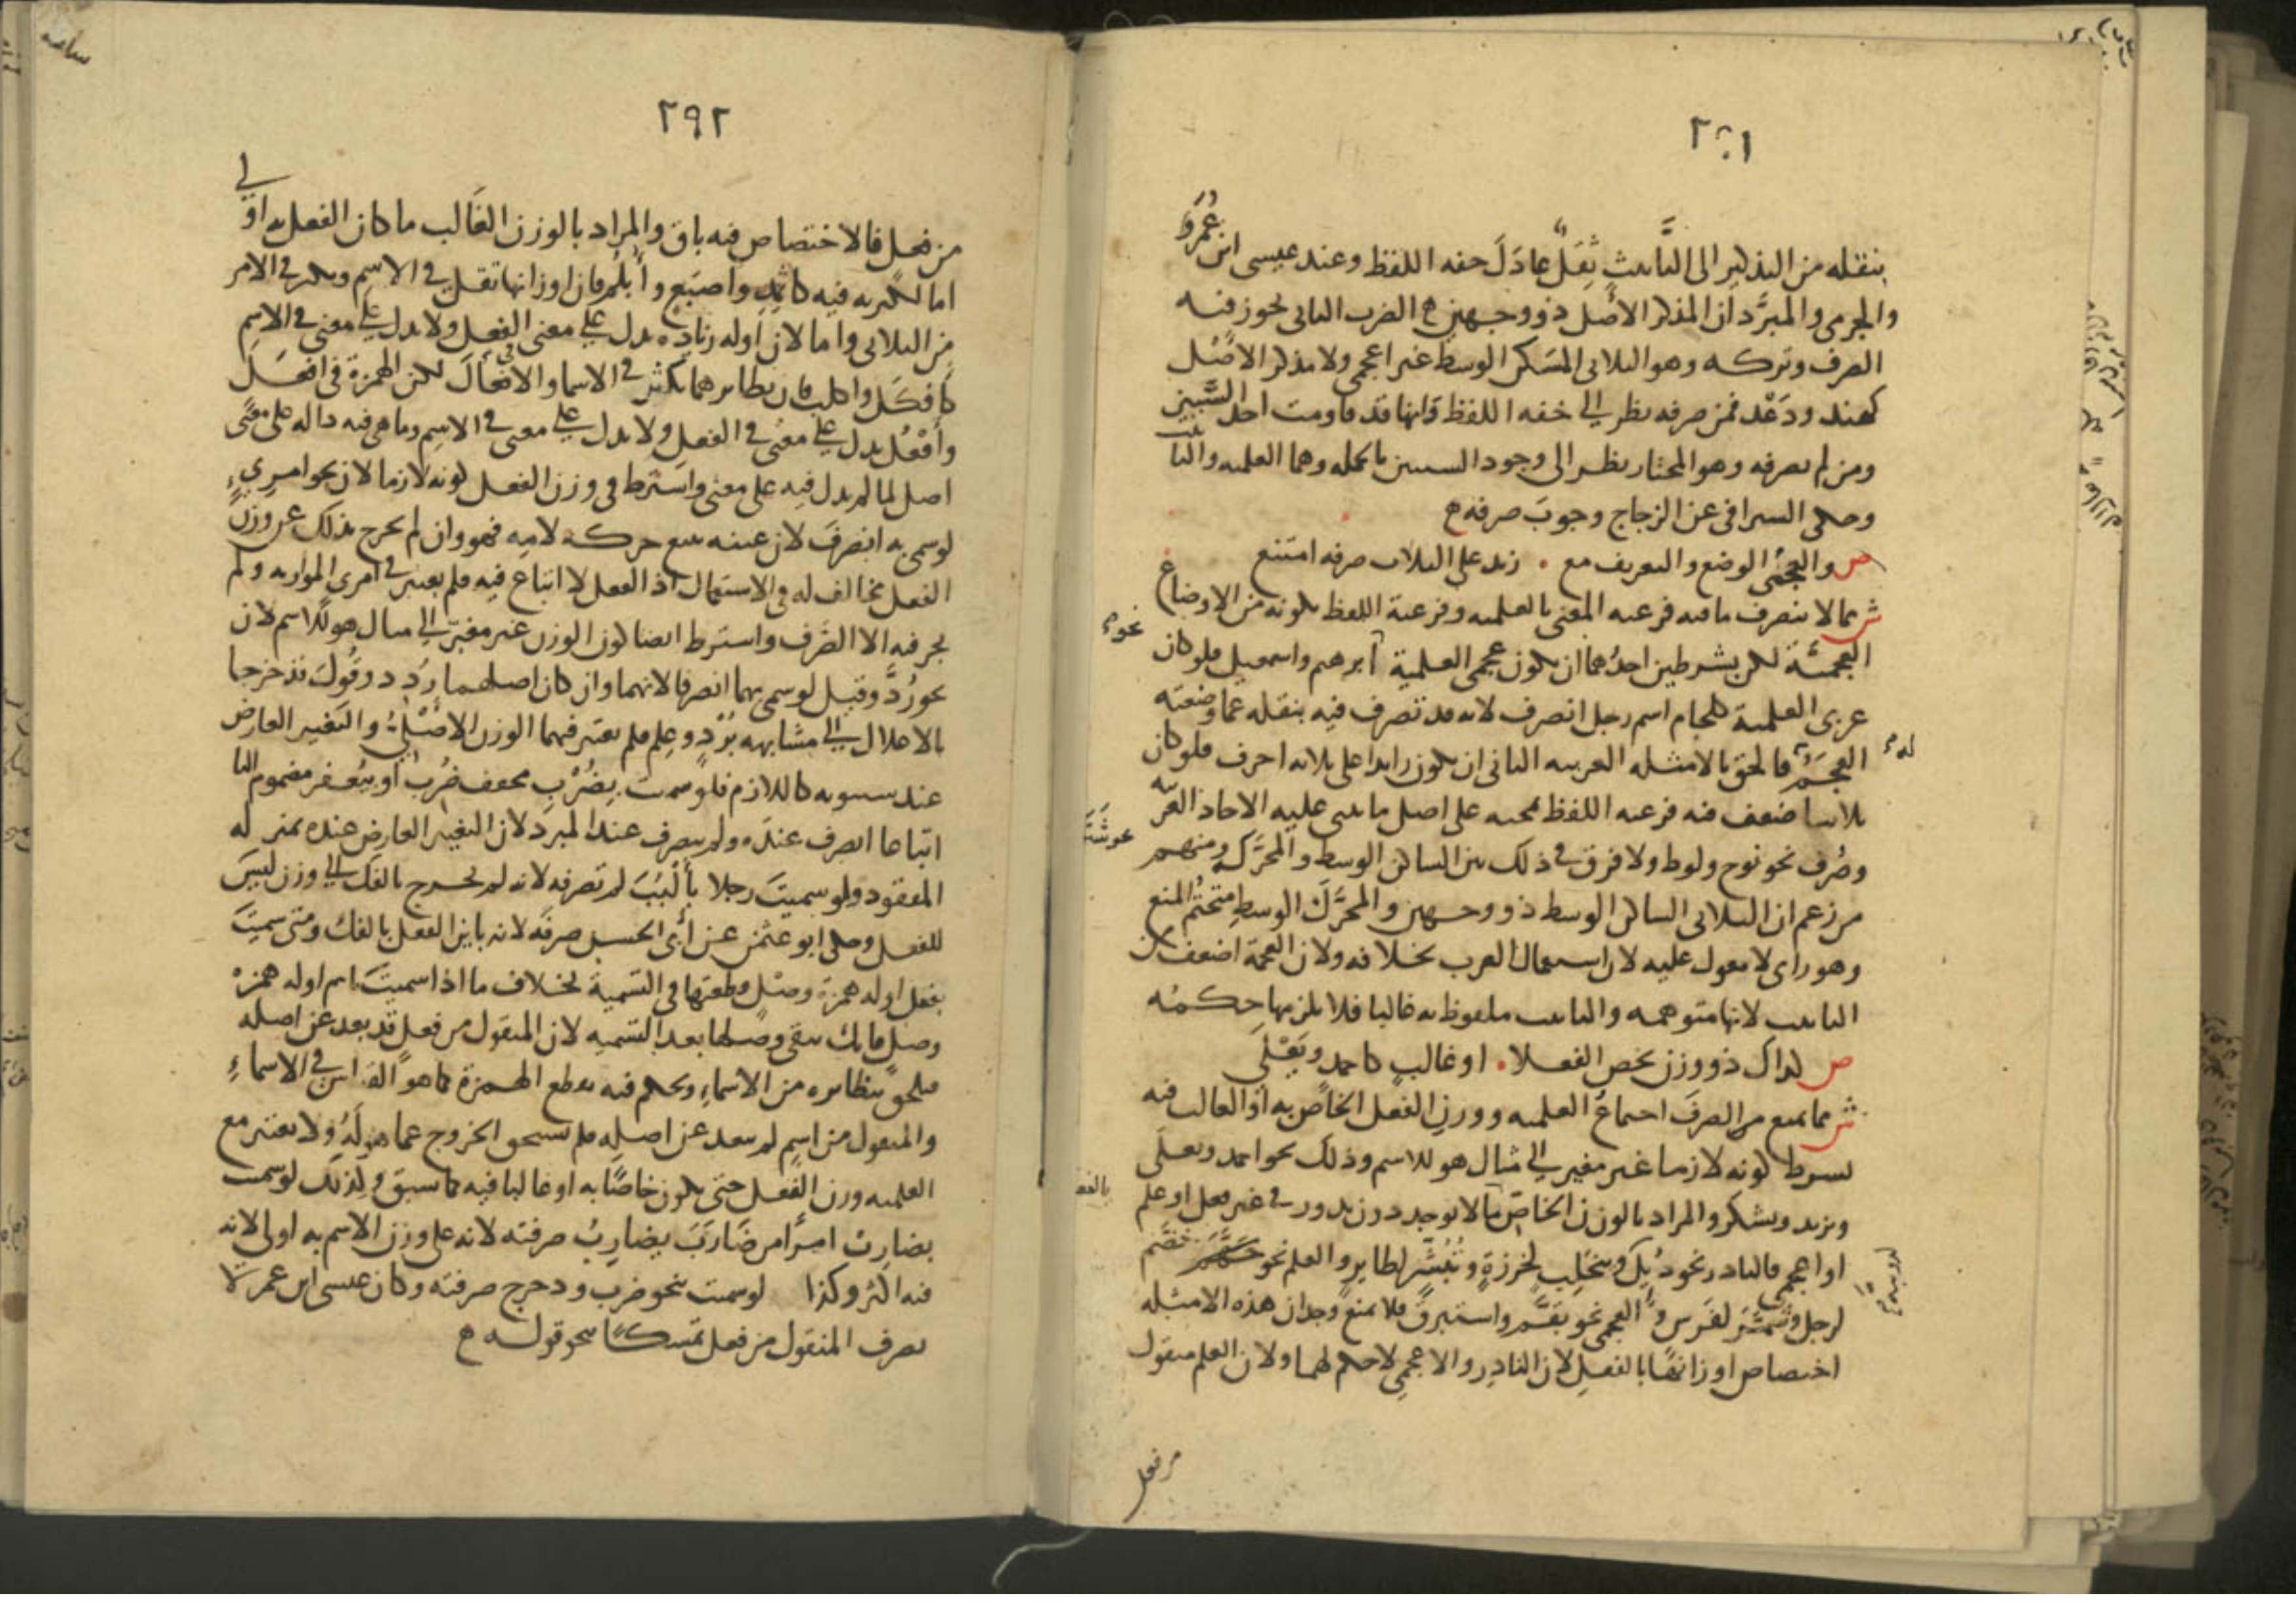 ٢٩١
بنقله من التذكير الى التأنيث ثِقَلٌ عادَلَ خفه اللفظ وعند عيسى ابن عُمَرَ
والجرمى والمبرَّد ان المذكر الاصل ذو وجهين ح الضرب الثانى يجوز فيه
الصرف وتركه وهو الثلاثى المسَكن الوسط غير اعجمى ولا مذكر الاصل
كهند ودَعْد فمن صرفه نظر الى خفه اللفظ وانها قد قاومت احد السَّببين
ومن لم يصرفه وهو المختار نظر الى وجود السببين بالجمله وهما العلميه والتأنيث
وحكى السيرافى عن الزجاج وجوبَ صرفه ح
ص والعجمىُّ الوضع والتعريف مع . زيد على الثلاث صرفه امتنع
ش مما لا ينصرف ما فيه فرعيه المعنى بالعلميه وفرعية اللفظ بكونه من الاوضاع
العجميَّة لكن بشرطين احدُهما ان يكون عجمى العلمية ابرهيم واسمعيل فلو كان
نحو
عربى العلمية كلجام اسم رجل انصرف لانه قد تصرف فيه بنقله عما وضعته
العجمُ فالحق بالامثله العربيه الثانى ان يكون زايدا على ثلاثه احرف فلو كان
له
ثلاثيا ضعف فيه فرعيه اللفظ بمجيه على اصل ما يبنى عليه الاحاد العربيّه
وصُرف نحو نوح ولوط ولا فرق فى ذلك بين الساكن الوسط والمحرَّكه ومنهم
من زعم ان الثلاثى الساكن الوسط ذو وجهين والمحرَّك الوسط متحتُم المنع
وهو راى لا معول عليه لان استعمال العرب بخلافه ولان العجمة اضعف من
التانيث لانها متوهمه والتانيث ملفوظ به غالبا فلا يلزمها حكمُه
ص كذاك ذو وزن يخص الفعلا . او غالب كاحمد ويَعْلَى
ش مما يمنع من الصرف اجتماعُ العلميه ووزن الفعل الخاص به او الغالب فيه
بشرط كونه لازما غير مغير الى مثال هو للاسم وذلك نحو احمد ويعلَى
ويزيد ويشكر والمراد بالوزن الخاص ما لا يوجد دون ندور فى غير فعل او علم
بالفعل
او اعجمى فالنادر نحو دُئِل وينجَلِب لخرزةٍ وتُبُشِّر لطاير والعلم نحو خَضَّم
لرجل وشَمَّر لفرس والعجمى نحو بقَّم واستبرق فلا يمنع وجدان هذه الامثله
اختصاص اوزانها بالفعلِ لان النادِر والاعجمى لا حكم لهما ولان العلم منقول
من فعل
٢٩٢
من فعل فالاختصاص فيه باق والمراد بالوزن الغالب ما كان الفعل به اولى
اما لكثرته فيه كاثمِدِ واصبَع وأُبلُم فان اوزانها تقل فى الاسم وتكثر فى الامر
من الثلاثى واما لان اوله زيادِه تدل على معنى فى الفعل ولا تدل على معنى فى الاسم
كافكَل واكلب فان نظايرهما تكثر فى الاسما والافعال لكن الهمزة فى افعَل
وأفْعُل تدل على معنى فى الفعل ولا تدل على معنى فى الاسم وما هى فيه داله على معنًى
اصل لما لم تدل فيه على معنى واشترط فى وزن الفعل كونه لازما لان نحو امرِىءٍ
لو سمى به انصرفَ لان عينه تتبع حركه لامِه فهو وان لم يخرج بذلك عن وزن
الفعل مخالف له فى الاستعمال اذ الفعل لا اتباع فيه فلم يعتبر فى امرى الموازنه ولم
يجز فيه الا الصَّرف واشترط ايضا كون الوزن غير مغير الى مثال هو للاسم لان
نحو رُدَّ وقيل لو سمى بهما انصرفا لانهما وان كان اصلهما رُدِدَ وقُوِلَ قد خرجا
بالاعلال الى مشابهه بُرْدٍ وعِلم فلم يعتبر فيهما الوزن الاصلى والتغيير العارض
عند سيبويه كاللازم فلو سميت بِضُرْبِ مخفف ضُرِبَ او بيُعْفُر مضموم اليا
اتباعا انصرف عنده ولم ينصرف عند المبرد لان التغيير العارض عنده بمنزله
المفقود ولو سميتَ رجلا بأَلْبُبَ لم تصرفه لانه لم يخرج بالفك الى وزن ليس
للفعل وحكى ابو عثمن عن ابى الحسن صرفَه لانه باين الفعل بالفك ومتى سميتَ
بفعل اوله همزة وصْل قطعتها فى التسمية بخلاف ما اذا سميت باسم اوله همزه
وصل فانك تبقى وصلها بعد التسميه لان المنقول من فعل قد بعد عن اصله
فيلحق بنظايره من الاسماءِ ويحكم فيه بقطع الهمزة كما هو القياس فى الاسماءِ
والمنقول من اسمٍ لم يبعد عن اصله فلم يستحق الخروج عما هو لَهُ ولا يعتبر مع
العلميه وزن الفعل حتى يكون خاصًا به او غالبا فيه كما سبق ولذلك لو سميت
بضارِبْ امرًا من ضَارَبَ يضارِبُ صرفته لانه على وزن الاسم به اولى لانه
فيه اكثر وكذا لو سميت بنحو ضرب ودحرج صرفته وكان عيسى ابن عمر لا
يصرف المنقول من فعل تمسكًا بنحو قوله ح